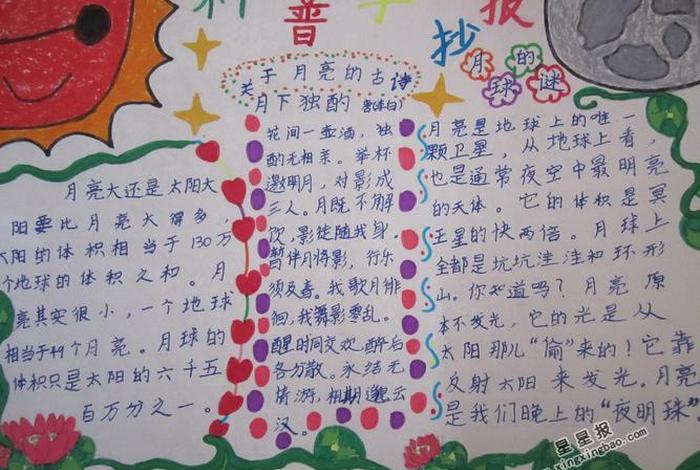 科普手抄报
月球的谜
关于月亮的古诗
月下独酌
李白
花间一壶酒，独
酌无相亲。举杯
邀明月，对影成
三人。月既不解
饮，影徒随我身。
暂伴月将影，行乐
须及春。我歌月徘
徊，我舞影零乱。
醒时同交欢，醉后
各分散。永结无
情游，相期邈云
汉。
月亮大还是太阳大
阳要比月亮大得多，
太阳的体积相当于130万
个地球的体积之和。月
亮其实很小，一个地球
相当于49个月亮。月球的
体积只是太阳的六千五
百万分之一。
月亮是地球上的唯一
颗卫星，从地球上看，
也是通常夜空中最明亮
的天体。它的体积是冥
王星的快两倍。月球上
全都是坑坑洼洼和环形
山。你知道吗？月亮原
本不发光，它的光是从
太阳那儿“偷”来的！它靠
反射太阳来发光。月亮
是我们晚上的“夜明珠”
星星报
xingxingbao.com